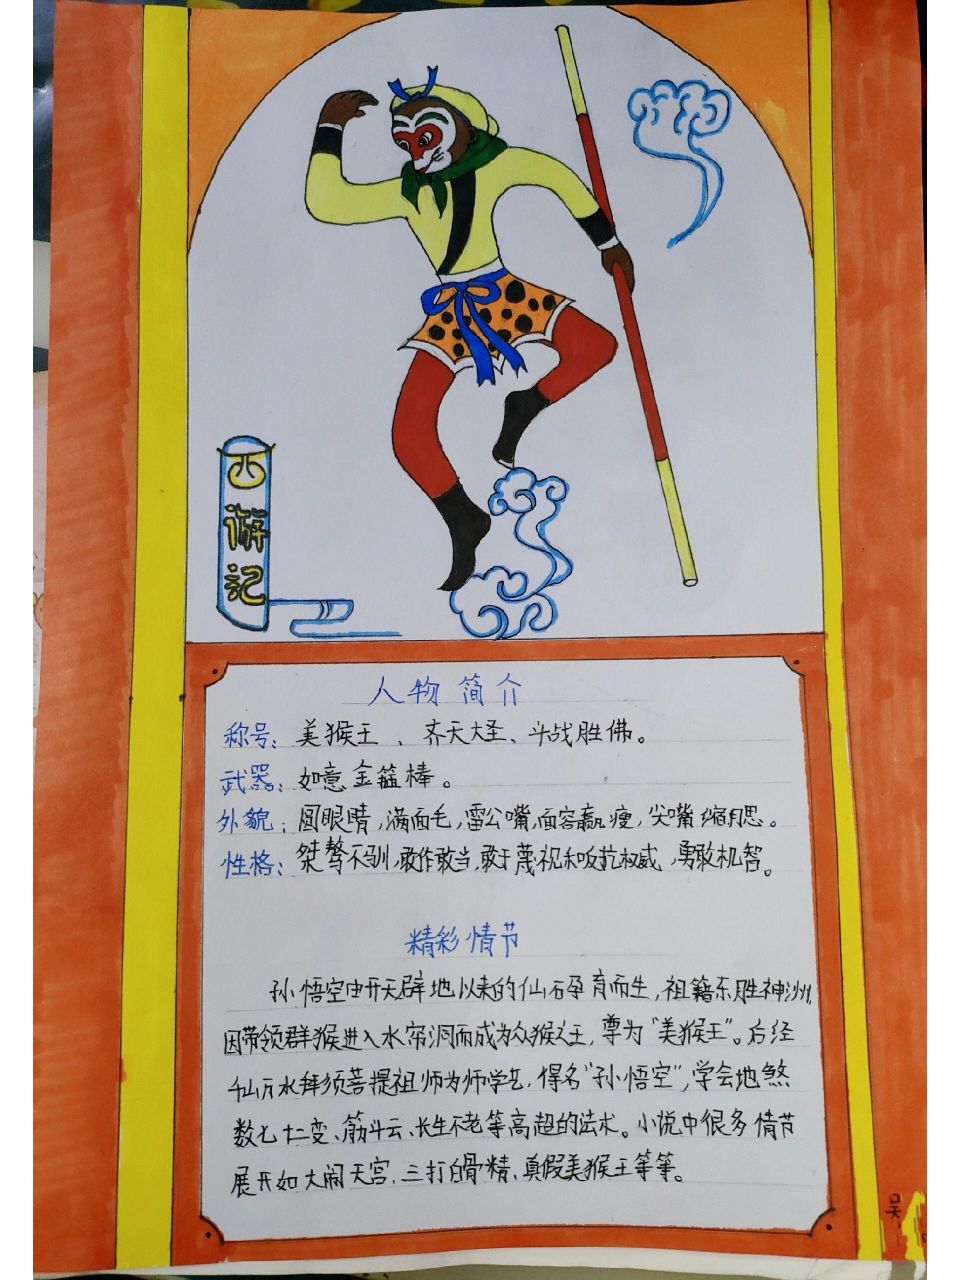 西游记
人物简介
称号：美猴王、齐天大圣、斗战胜佛。
武器：如意金箍棒。
外貌：圆眼睛，满面毛，雷公嘴，面容羸瘦，尖嘴缩腮。
性格：桀骜不驯，敢作敢当，敢于蔑视和反抗权威，勇敢机智。
精彩情节
孙悟空由开天辟地以来的仙石孕育而生，祖籍东胜神洲，
因带领群猴进入水帘洞而成为众猴之王，尊为“美猴王”。后经
千山万水拜须菩提祖师为师学艺，得名“孙悟空”，学会地煞
数七十二变、筋斗云、长生不老等高超的法术。小说中很多情节
展开如大闹天宫、三打白骨精、真假美猴王等等。
吴